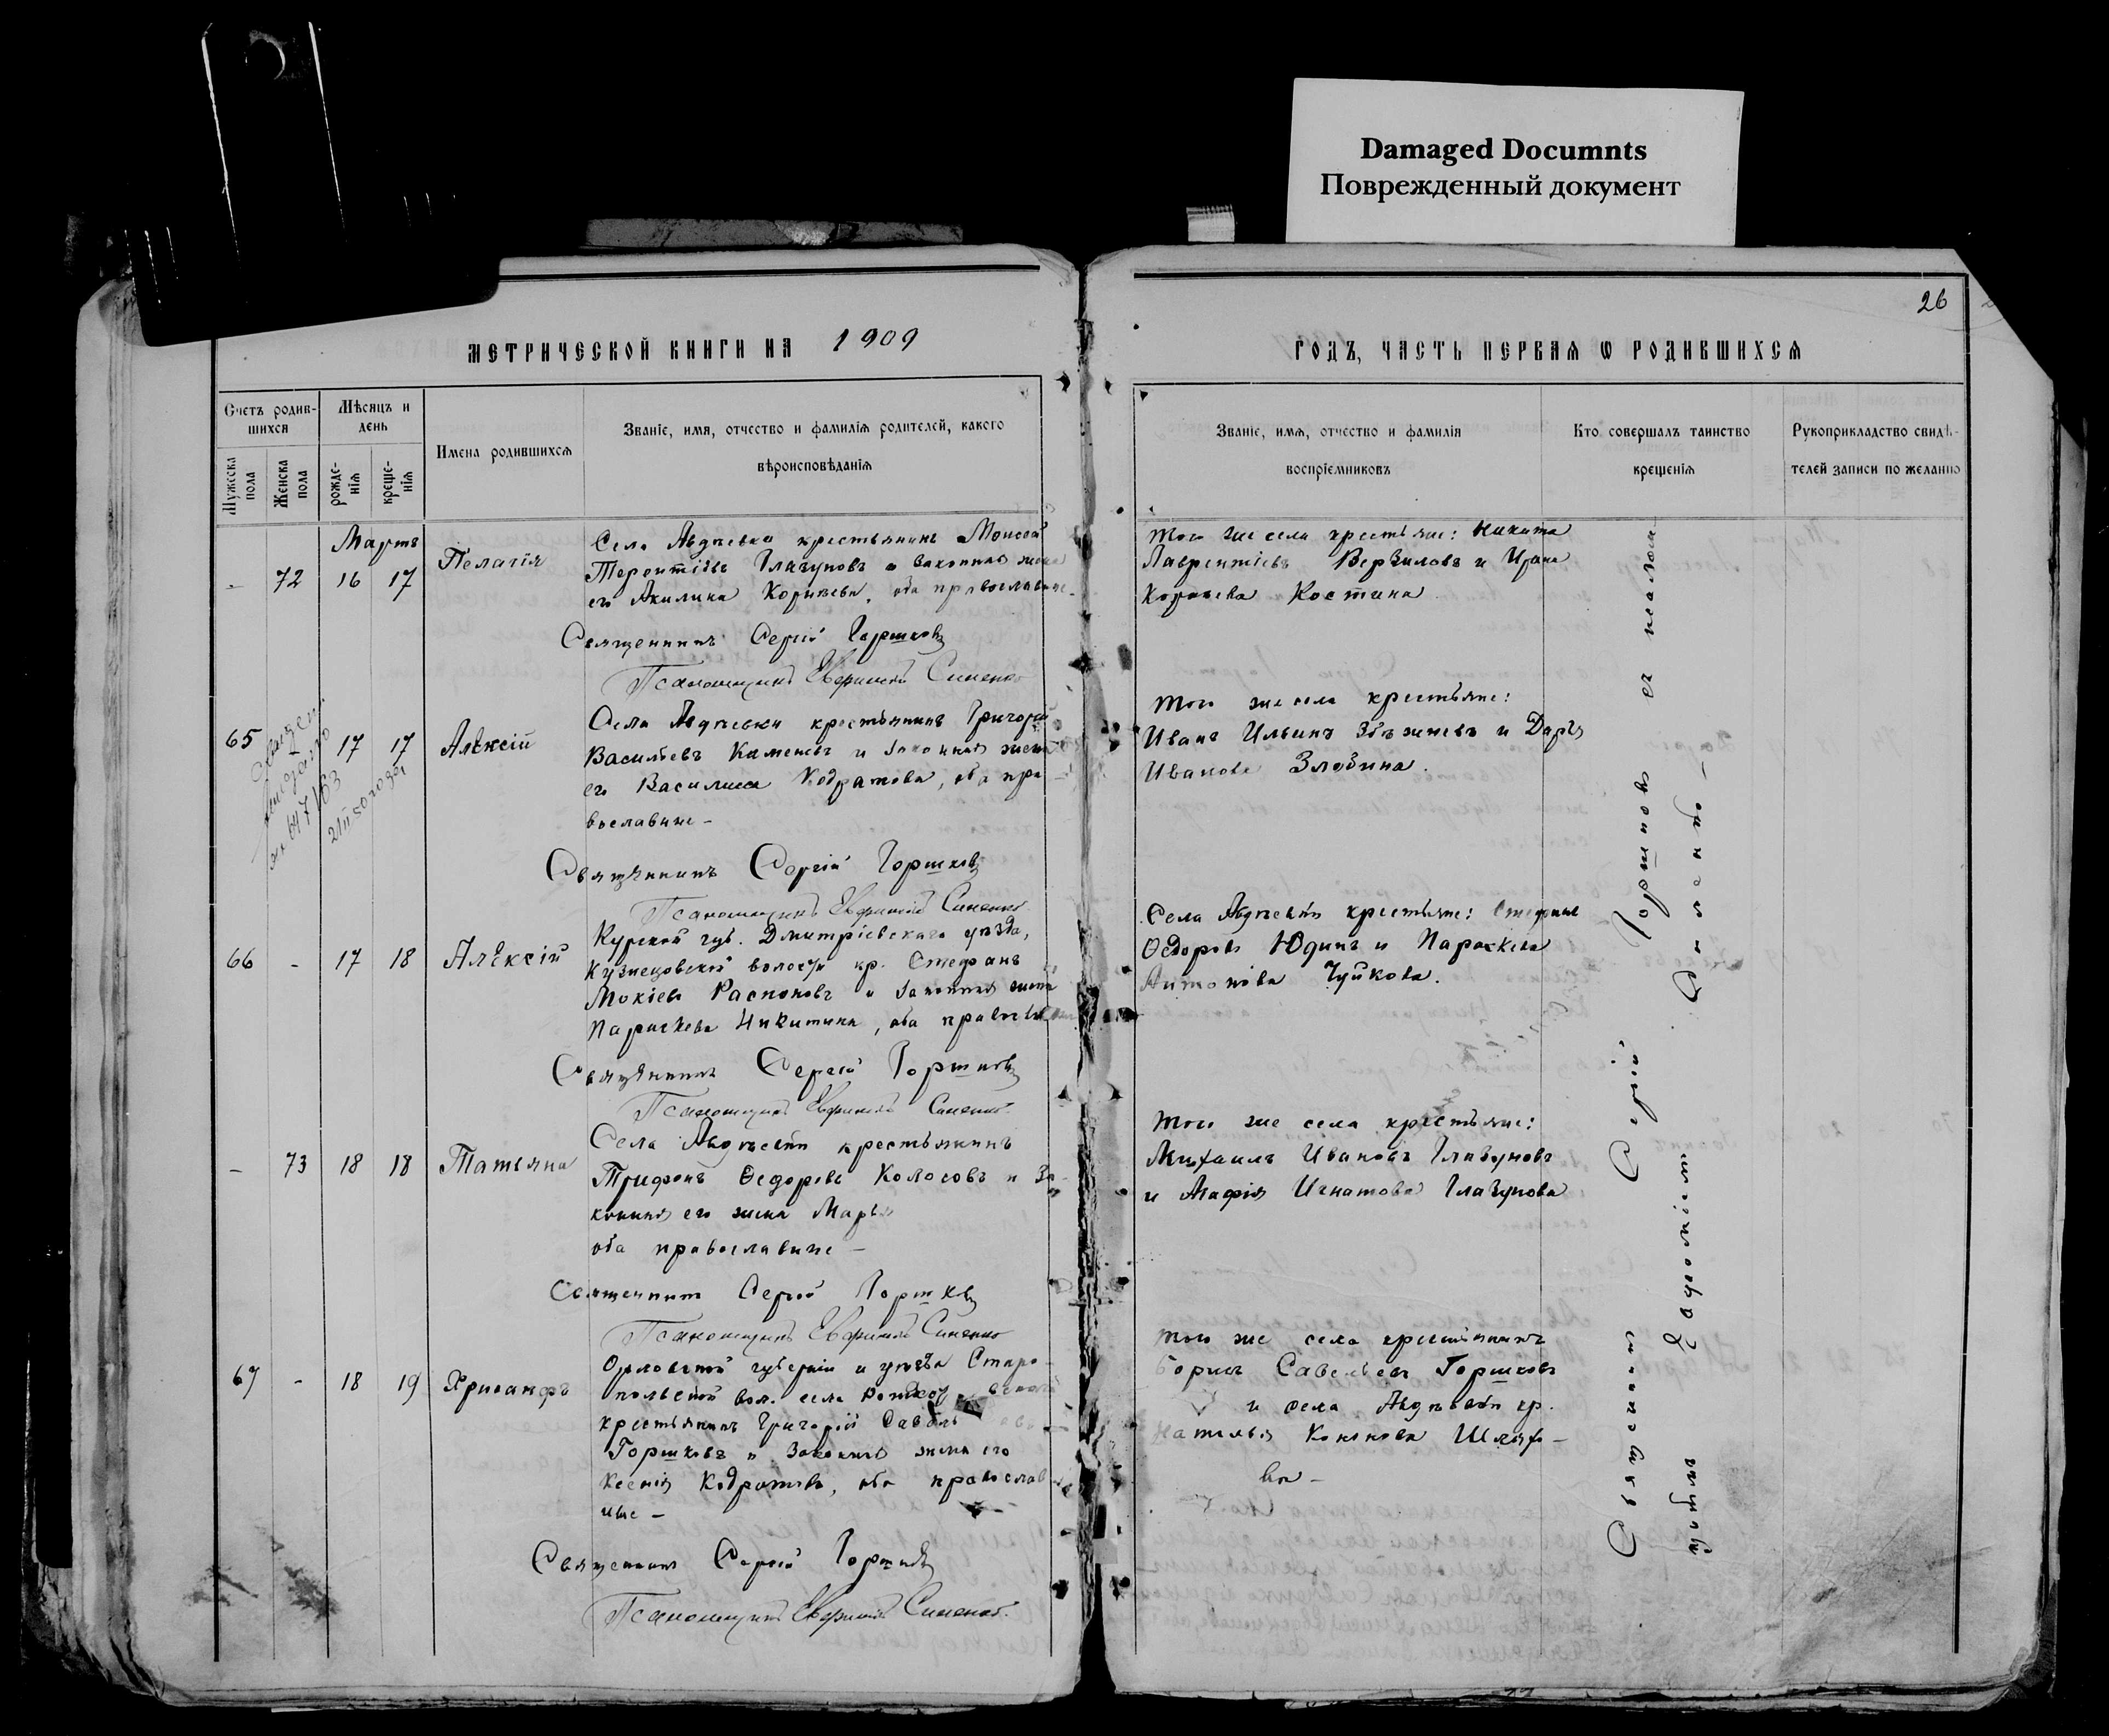 Damaged Documnts
Поврежденный документ
26
МЕТРИЧЕСКОЙ КНИГИ НА 1909
ГОДЪ, ЧАСТЬ ПЕРВАЯ Ѡ РОДИВШИХСЯ
Счетъ родившихся
Мужеска пола
Женска пола
Мѣсяцъ и день
рожденія
крещенія
Имена родившихся
Званіе, имя, отчество и фамилія родителей, какого
вѣроисповѣданія
Званіе, имя, отчество и фамилія
воспріемниковъ
Кто совершалъ таинство
крещенія
Рукоприкладство свидѣ-
телей записи по желанію
Мартъ
- 72 16 17 Пелагія
Села Авдѣевки крестьянинъ Моисей
Терентіевъ Глазуновъ и законная жена
его Акилина Корнѣева, оба православные.
Священникъ Сергій Горшковъ
Псаломщикъ Евфимій
Того же села крестьяне: Никита
Лаврентіевъ Верзиловъ и
Костина
65 17 17 Алексій
Села Авдѣевки крестьянинъ Григорій
Васильевъ Каменевъ и законная жена
его Василиса Кодратова, оба пра-
вославные -
Священникъ Сергій Горшковъ
Псаломщикъ Евфимій
Того же села крестьяне:
Иванъ Ильинъ и Дарья
Иванова Злобина.
66 - 17 18 Алексій
Курской губ. Дмитріевскаго уѣзда,
Кузнецовской волости кр. Стефанъ
Мокіевъ и законная жена
Параскева Никитина, оба
Священникъ Сергій Горшковъ
Псаломщикъ Евфимій
Села Авдѣевки крестьяне: Стефанъ
Ѳедоровъ Юдинъ и Параскева
Антонова Чуйкова.
- 73 18 18 Татьяна
Села Авдѣевки крестьянинъ
Трифонъ Ѳедоровъ Колосовъ и За-
конная его жена Марья
оба православные -
Священникъ Сергій Горшковъ
Псаломщикъ Евфимій
Того же села крестьяне:
Михаилъ Ивановъ Глазуновъ
и Агафія Игнатова Глазунова
67 - 18 19 Хрисанфъ
Орловской губерніи и уѣзда Старо-
польской вол. села
крестьянинъ Григорій
Горшковъ и Законная жена его
Ксенія Кодратова, оба православ-
ные -
Священникъ Сергій Горшковъ
Псаломщикъ Евфимій
Того же села крестьянинъ
Борисъ Савельевъ Горшковъ
и села Авдѣевки кр.
Наталья Кононова
ва -
Священникъ Сергій Горшковъ съ псалом-
щикомъ Евфиміемъ